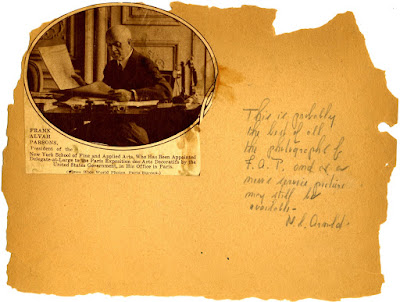 FRANK
ALVAH
PARSONS,
President of the
New York School of Fine and Applied Arts, Who Has Been Appointed
Delegate-at-Large to the Paris Exposition des Arts Decoratifs by the
United States Government, at His Office in Paris.
(Times Wide World Photos, Paris Bureau.)
This is probably
the best of all
the photographs of
F.A.P. and as a
news service picture
may still be
available -